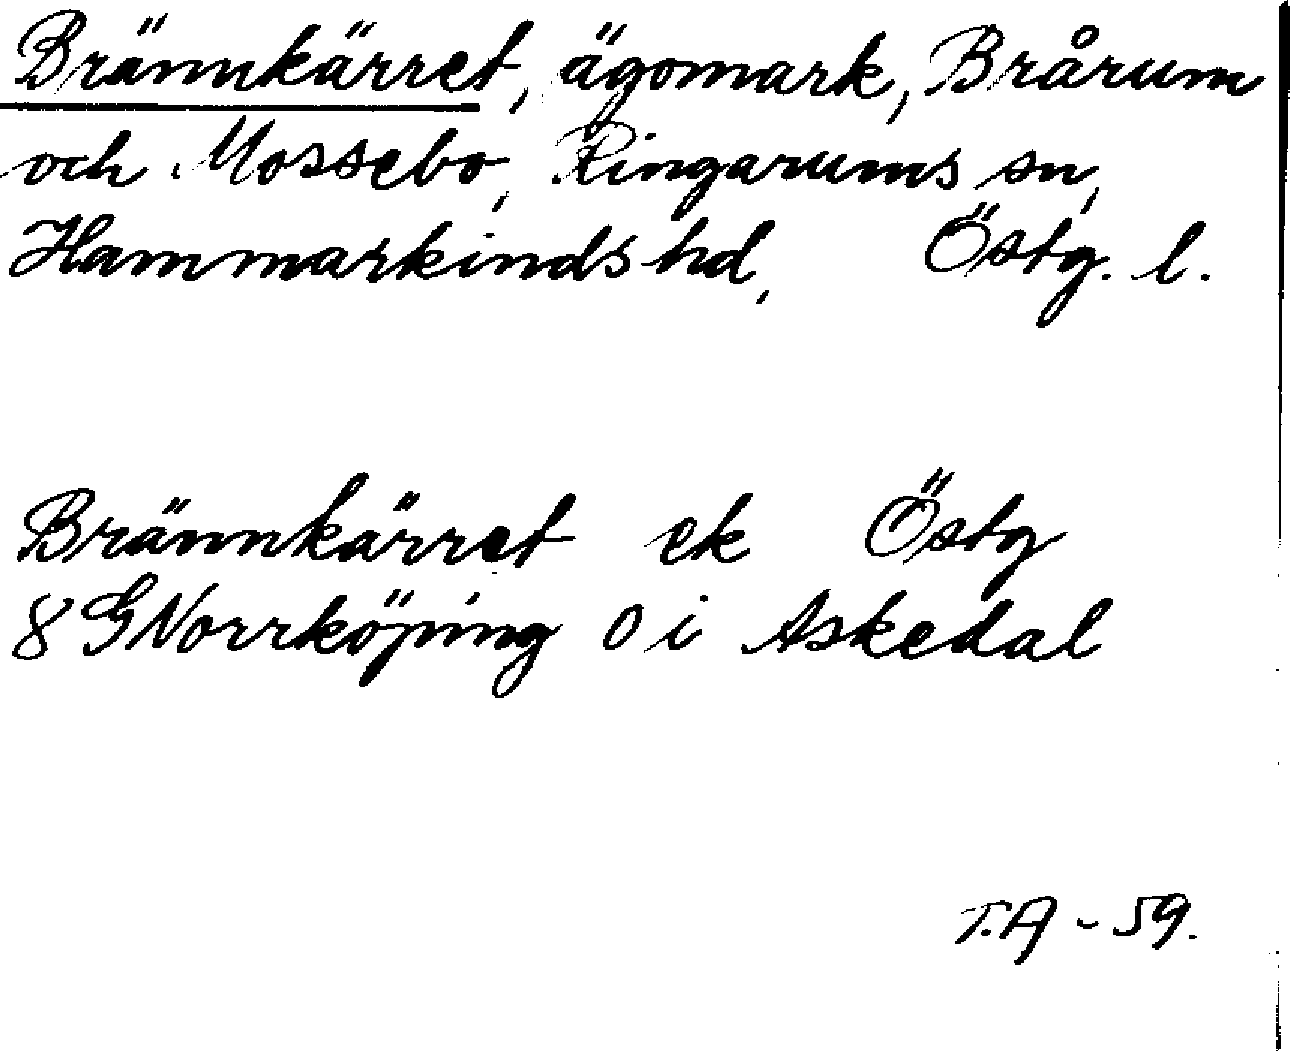 Brännkärret, ägomark, Brårum
och Mossebo, Ringarums sn,
Hammarkinds hd, Östg. l.
Brännkärret ek Östg
8 G Norrköping O i Askedal
T.A - 59.